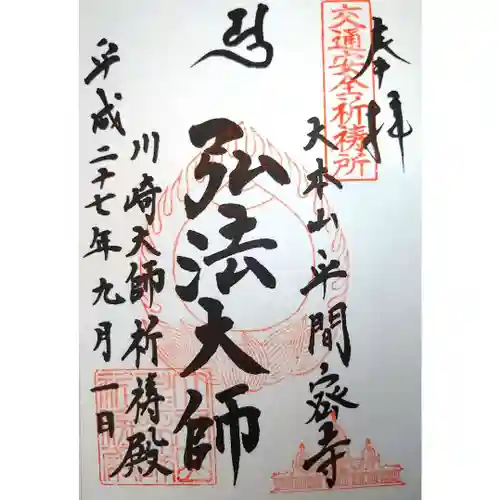 奉拝
交通安全祈祷所
大本山平間寺
弘法大師
川崎大師祈祷殿
平成二十七年九月一日